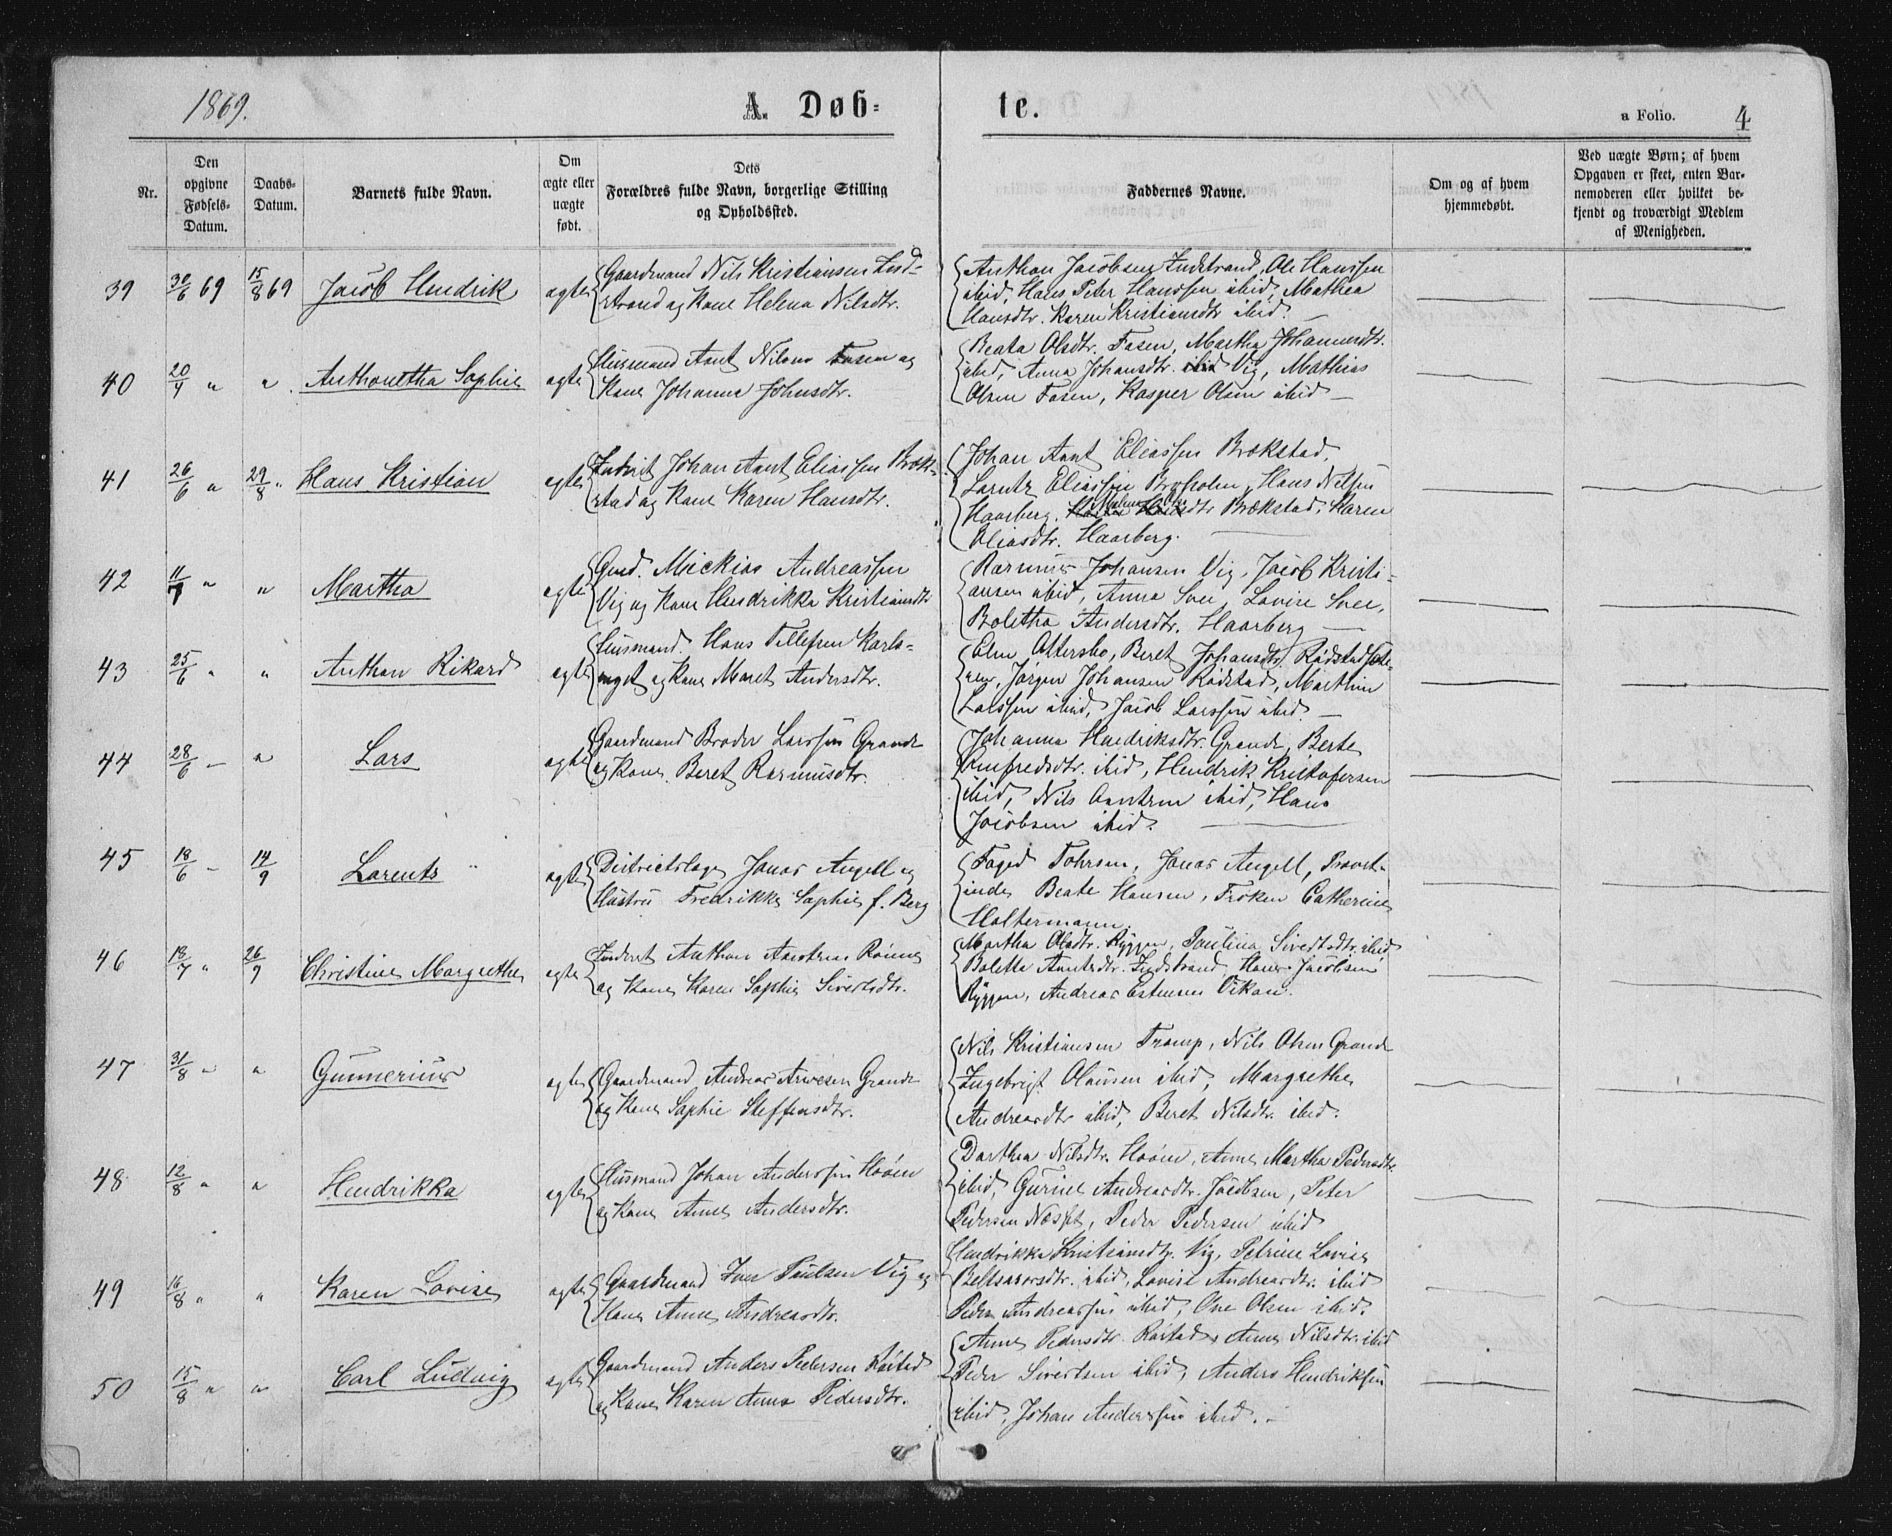 1869.
A. Døb-
te.
a Folio. 4
Nr.
Den opgivne Fødsels-Datum.
Daabs-Datum.
Barnets fulde Navn.
Om ægte eller uægte født.
Dets Forældres fulde Navn, borgerlige Stilling og Opholdssted.
Faddernes Navne.
Om og af hvem hjemmedøbt.
Ved uægte Børn; af hvem Opgaven er skeet, enten Barnemoderen eller hvilket bekjendt og troværdigt Medlem af Menigheden.
39 30/6 69 15/8 69 Jacob Hendrik ægte
Gaardmand Nils Kristiansen Ind-
strand og Kone Helena Nilsdtr.
Anthon Jacobsen Indstrand, Ole Hanssen
ibid, Hans Peter Hanssen ibid, Mathea
Hansdtr. Karen Kristiansdtr ibid.
40 20/4 " " Anthonetha Sophie ægte
Husmand Arnt Nilsen Fasen og
Kone Johanna Johnsdtr.
Beata Olsdtr. Fasen, Martha Johannesdtr.
ibid, Anna Johansdtr. ibid Vig, Mathias
Olsen Fasen, Kasper Olsen ibid
41 26/6 " 29/8 " Hans Kristian ægte
Inderst Johan Arnt Eliassen Bræk-
stad og Kone Karen Hansdtr.
Johan Arnt Eliassen Brækstad,
Lorentz Eliassen Hans Nilsen
Haarberg. dtr Brækstad, Karen
Eliasdtr. Haarberg.
42 11/7 " " Martha ægte
Gmd. Mickias Andreassen
Vig og Kone Hendrikka Kristiansdtr
Rasmus Johansen Vig, Jacob Kristi-
ansen ibid, Anna Svee, Lovise Svee,
Boletha Andersdtr. Haarberg
43 25/6 " " Anthon Rikard ægte
Husmand. Hans Tillefsen Karls-
enget og Kone Maret Andersdtr.
Elen Ottersbo, Beret Johansdtr. Rødstad
Jørgen Johansen Rødstad, Marthin
Larssen ibid, Jacob Larssen ibid.
44 28/6 — " Lars ægte
Gaardmand Broder Larssen Grande
og Kone Beret Rasmusdtr.
Johanna Hendriksdtr. Grande, Berte
Anfredsdtr. ibid, Hendrik Kristofersen
ibid, Nils Arntsen ibid, Hans
Jacobsen ibid.
45 18/6 — 14/9 Lorents ægte
Districtslæge Jonas Angell og
Hustru Fredrikke Sophie f. Berg
Foged Fohrsen, Jonas Angell, Provst-
inde Beate Hansen, Frøken Catherine
Holtermann.
46 13/7 " 26/9 Christine Margrethe ægte
Inderst Anthon Arntsen Rønne
og Kone Karen Sophie Sivertsdtr.
Martha Olsdtr. Ryggen, Paulina Sivertsdtr. ibid
Bolette Arntsdtr. Indstrand, Hans Jacobsen
Ryggen, Andreas Estensen Vikan.
47 31/8 " " Gunnerius ægte
Gaardmand Andreas Arnesen Grande
og Kone Sophie Steffensdtr.
Nils Kristiansen Tramp, Nils Olsen Grande
Ingebrigt Olausen ibid, Margrethe
Andreasdtr ibid, Beret Nilsdtr. ibid.
48 12/8 " " Hendrikka ægte
Husmand Johan Anderssen Hoøen
og Kone Anne Andersdtr.
Dorthea Nilsdtr. Hoøen, Anne Martha Pedersdtr.
ibid, Gurine Andreasdtr. Jacobsen, Peter
Pedersen Næsset, Peder Pedersen ibid
49 16/8 " " Karen Lovise ægte
Gaardmand Iver Paulsen Vig og
Kone Anne Andreasdtr.
Hendrikka Kristiansdtr. Vig, Petrine Lovise
Beltsarsdtr. ibid, Lovise Andreasdtr. ibid
Peder Andreassen ibid, Ove Olsen ibid.
50 15/8 " " Carl Ludvig ægte
Gaardmand Anders Pedersen Røstad
og Kone Karen Anna Pedersdtr.
Anne Pedersdtr. Røstad, Anne Nilsdtr. ibid
Peder Sivertsen ibid, Anders Hendriksen
ibid, Johan Anderssen ibid.